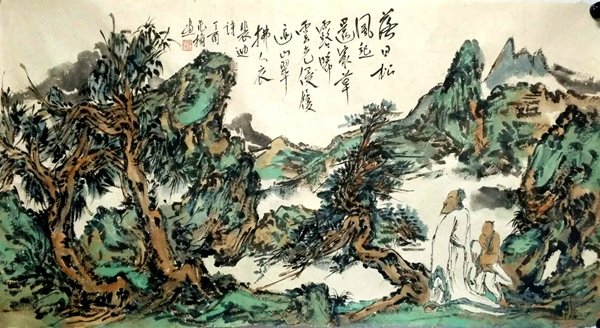 落日松
風起
還家草
露晞
雲光侵履
迹山翠
拂人衣
裴迪
詩
丁酉
畫